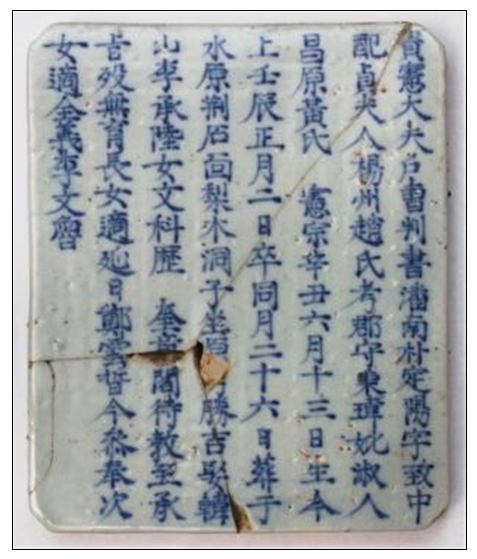 資憲大夫戶曺判書潘南朴定陽字致中
配貞夫人楊州趙氏考郡守東瑋妣淑人
昌原黃氏 憲宗辛丑六月十三日生今
上壬辰正月二日卒同月二十六日葬于
水原荆石面梨木洞子坐原勝吉娶韓
山李承陸女文科歷 奎章閣待敎至承
旨歿無育長女適延日鄭雲今叅奉次
女適全義李文魯